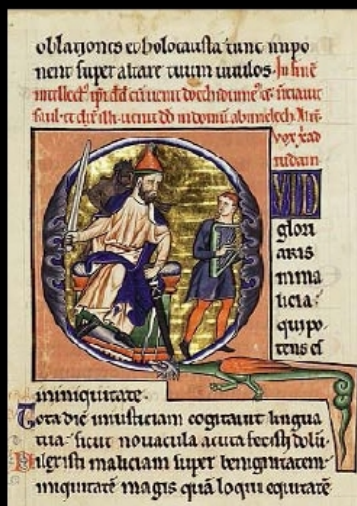 oblationes et holocausta tunc inpo
nent super altare tuum vitulos. In finē
intellect᷒
saul
vox xp̄i ad
iudam
UID
glori
aris
in ma
licia:
qui po
tens es
in iniquitate.
Tota die iniusticiam cogitauit lingua
tua: sicut nouacula acuta fecisti dolū
Dilexisti maliciam super benignitatem:
iniquitatē magis quā loqui equitatē